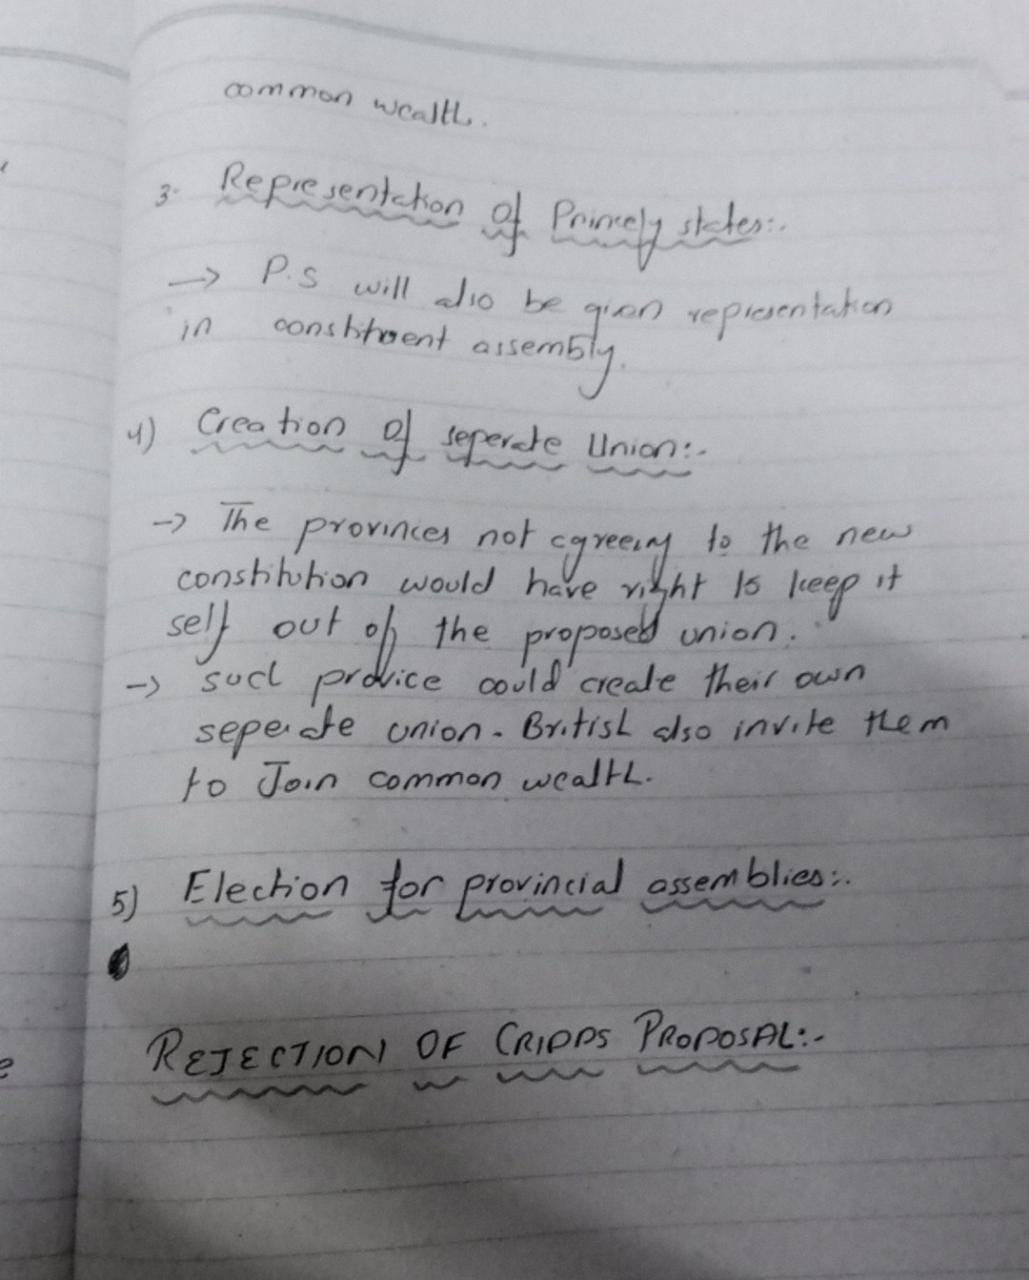 common wealth.
3. Representation of Princely states:-
→ P.S will also be given representation
in constituent assembly.
4) Creation of seperate Union:-
→ The provinces not agreeing to the new
constitution would have right to keep it
self out of the proposed union.
→ such provice could create their own
seperate union. British also invite them
to Join common wealth.
5) Election for provincial assemblies:-
REJECTION OF CRIPPS PROPOSAL:-